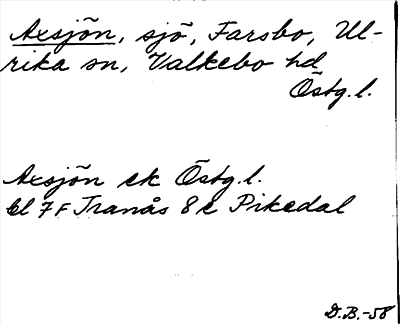 Axsjön, sjö, Farsbo, Ul-
rika sn, Valkebo hd
Östg.l.
Axsjön ek Östg.l.
bl 7F Tranås 8e Pikedal
D.B.-58